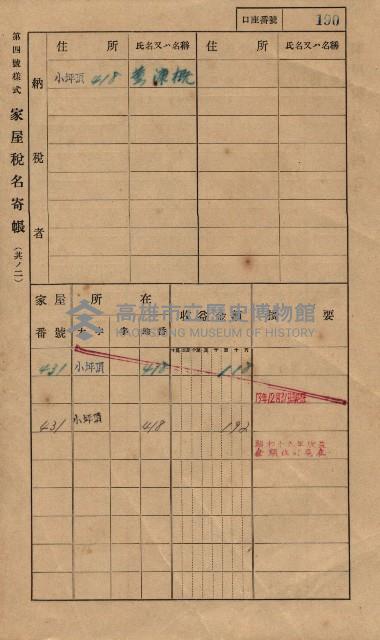 口座番號 190
第四號樣式 家屋稅名寄帳 (其ノ二)
納稅者
住所 氏名又ハ名稱 住所 氏名又ハ名稱
小坪頂 418 李
家屋番號 所在 大字 字 地番 收益金額 摘要
高雄市立歷史博物館
KAOHSIUNG MUSEUM OF HISTORY
431 小坪頂 418 118
13年12月31日
431 小坪頂 418 192
昭和十六年收益
金額改訂